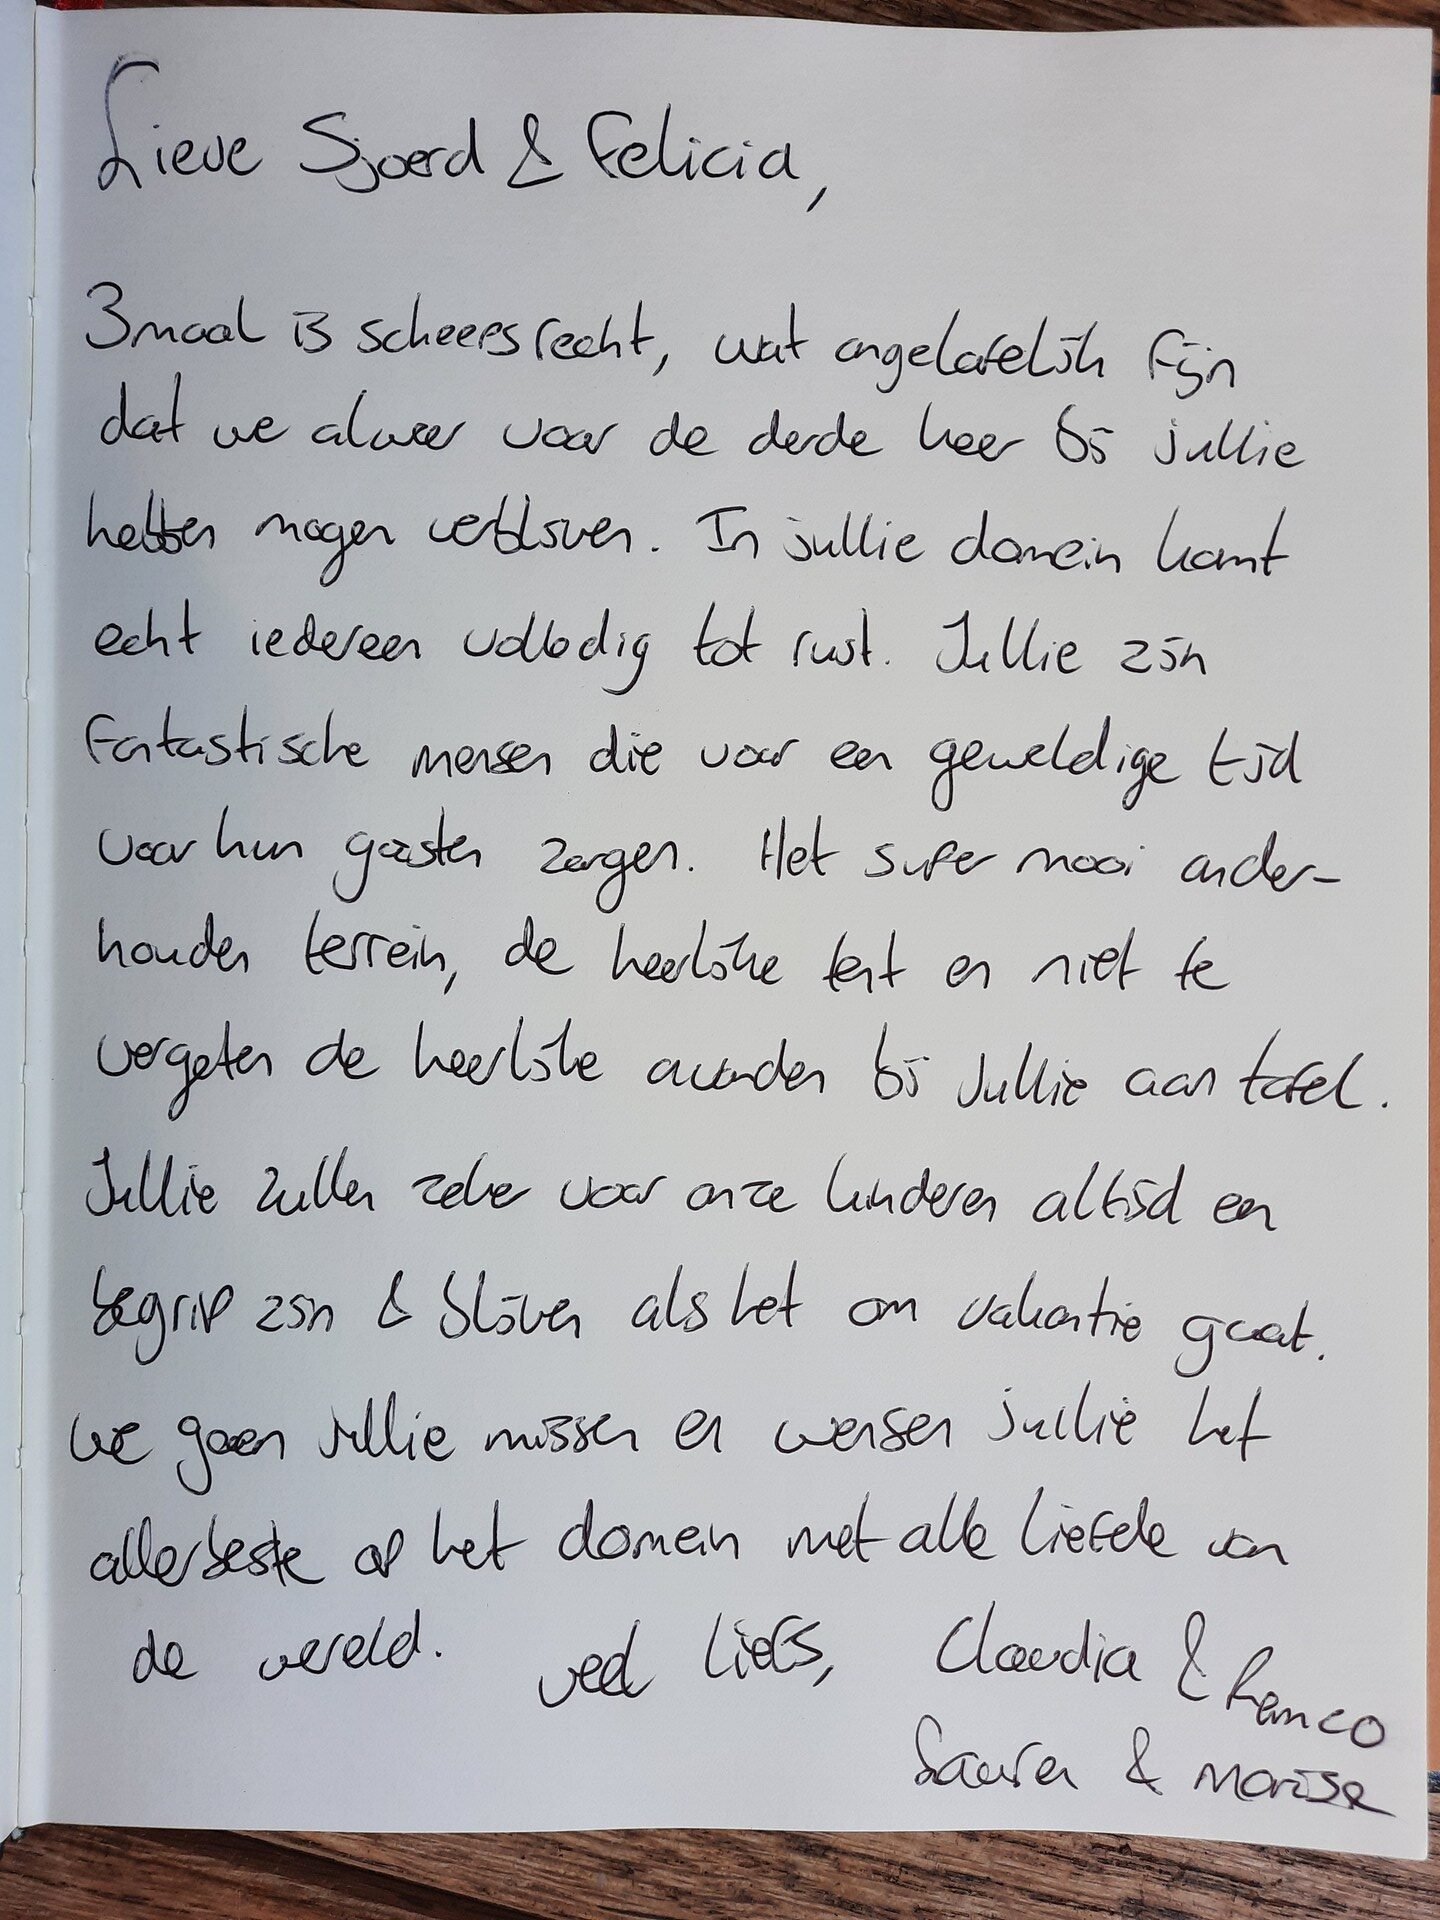 Lieve Sjoerd & Felicia,
3maal is scheepsrecht, wat ongelofelijk fijn
dat we alweer voor de derde keer bij jullie
hebben mogen verblijven. In jullie domein komt
echt iedereen volledig tot rust. Jullie zijn
fantastische mensen die voor een geweldige tijd
voor hun gasten zorgen. Het super mooi onder-
houden terrein, de heerlijke tent en niet te
vergeten de heerlijke avonden bij jullie aan tafel.
Jullie zullen zeker voor onze kinderen altijd een
begrip zijn & blijven als het om vakantie gaat.
We gaan jullie missen en wensen jullie het
allerbeste op het domein met alle liefde van
de wereld. veel liefs, Claudia & Remco
Lauren & Marise